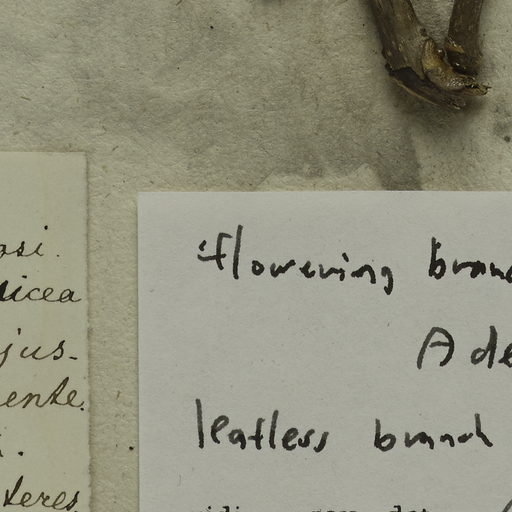 osi.
dicea
jus-
ente.
teres,
flowering branc
Ade
leafless branch